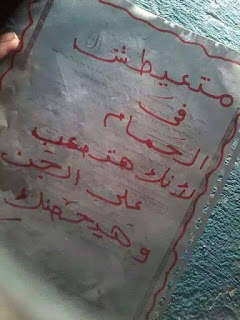 متعيطش
في
الحمام
لانك هتصعب
على الجن
وهيحضنك